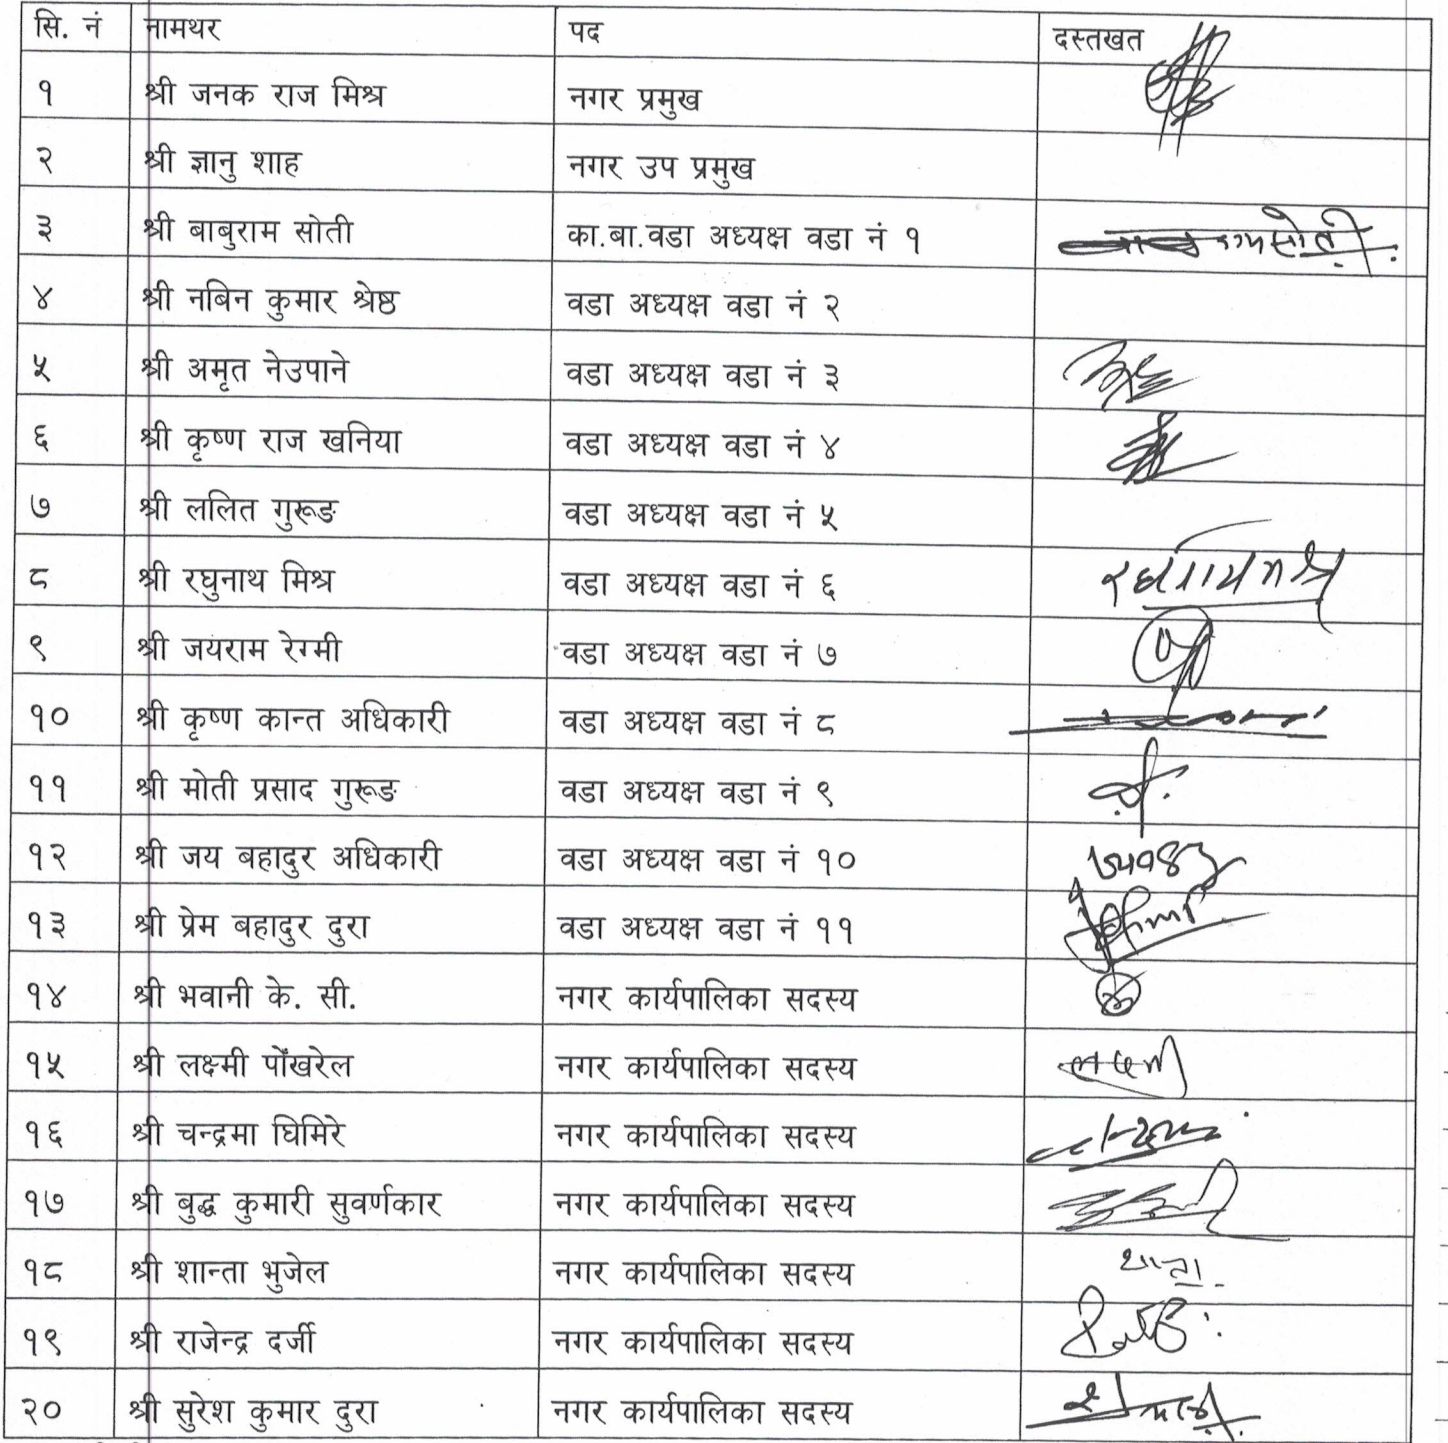 सि. नं नामथर पद दस्तखत
१ श्री जनक राज मिश्र नगर प्रमुख
२ श्री ज्ञानु शाह नगर उप प्रमुख
३ श्री बाबुराम सोती का.बा.वडा अध्यक्ष वडा नं १
४ श्री नबिन कुमार श्रेष्ठ वडा अध्यक्ष वडा नं २
५ श्री अमृत नेउपाने वडा अध्यक्ष वडा नं ३
६ श्री कृष्ण राज खनिया वडा अध्यक्ष वडा नं ४
७ श्री ललित गुरूङ वडा अध्यक्ष वडा नं ५
८ श्री रघुनाथ मिश्र वडा अध्यक्ष वडा नं ६
९ श्री जयराम रेग्मी वडा अध्यक्ष वडा नं ७
१० श्री कृष्ण कान्त अधिकारी वडा अध्यक्ष वडा नं ८
११ श्री मोती प्रसाद गुरूङ वडा अध्यक्ष वडा नं ९
१२ श्री जय बहादुर अधिकारी वडा अध्यक्ष वडा नं १०
१३ श्री प्रेम बहादुर दुरा वडा अध्यक्ष वडा नं ११
१४ श्री भवानी के. सी. नगर कार्यपालिका सदस्य
१५ श्री लक्ष्मी पोंखरेल नगर कार्यपालिका सदस्य
१६ श्री चन्द्रमा घिमिरे नगर कार्यपालिका सदस्य
१७ श्री बुद्ध कुमारी सुवर्णकार नगर कार्यपालिका सदस्य
१८ श्री शान्ता भुजेल नगर कार्यपालिका सदस्य
१९ श्री राजेन्द्र दर्जी नगर कार्यपालिका सदस्य
२० श्री सुरेश कुमार दुरा नगर कार्यपालिका सदस्य